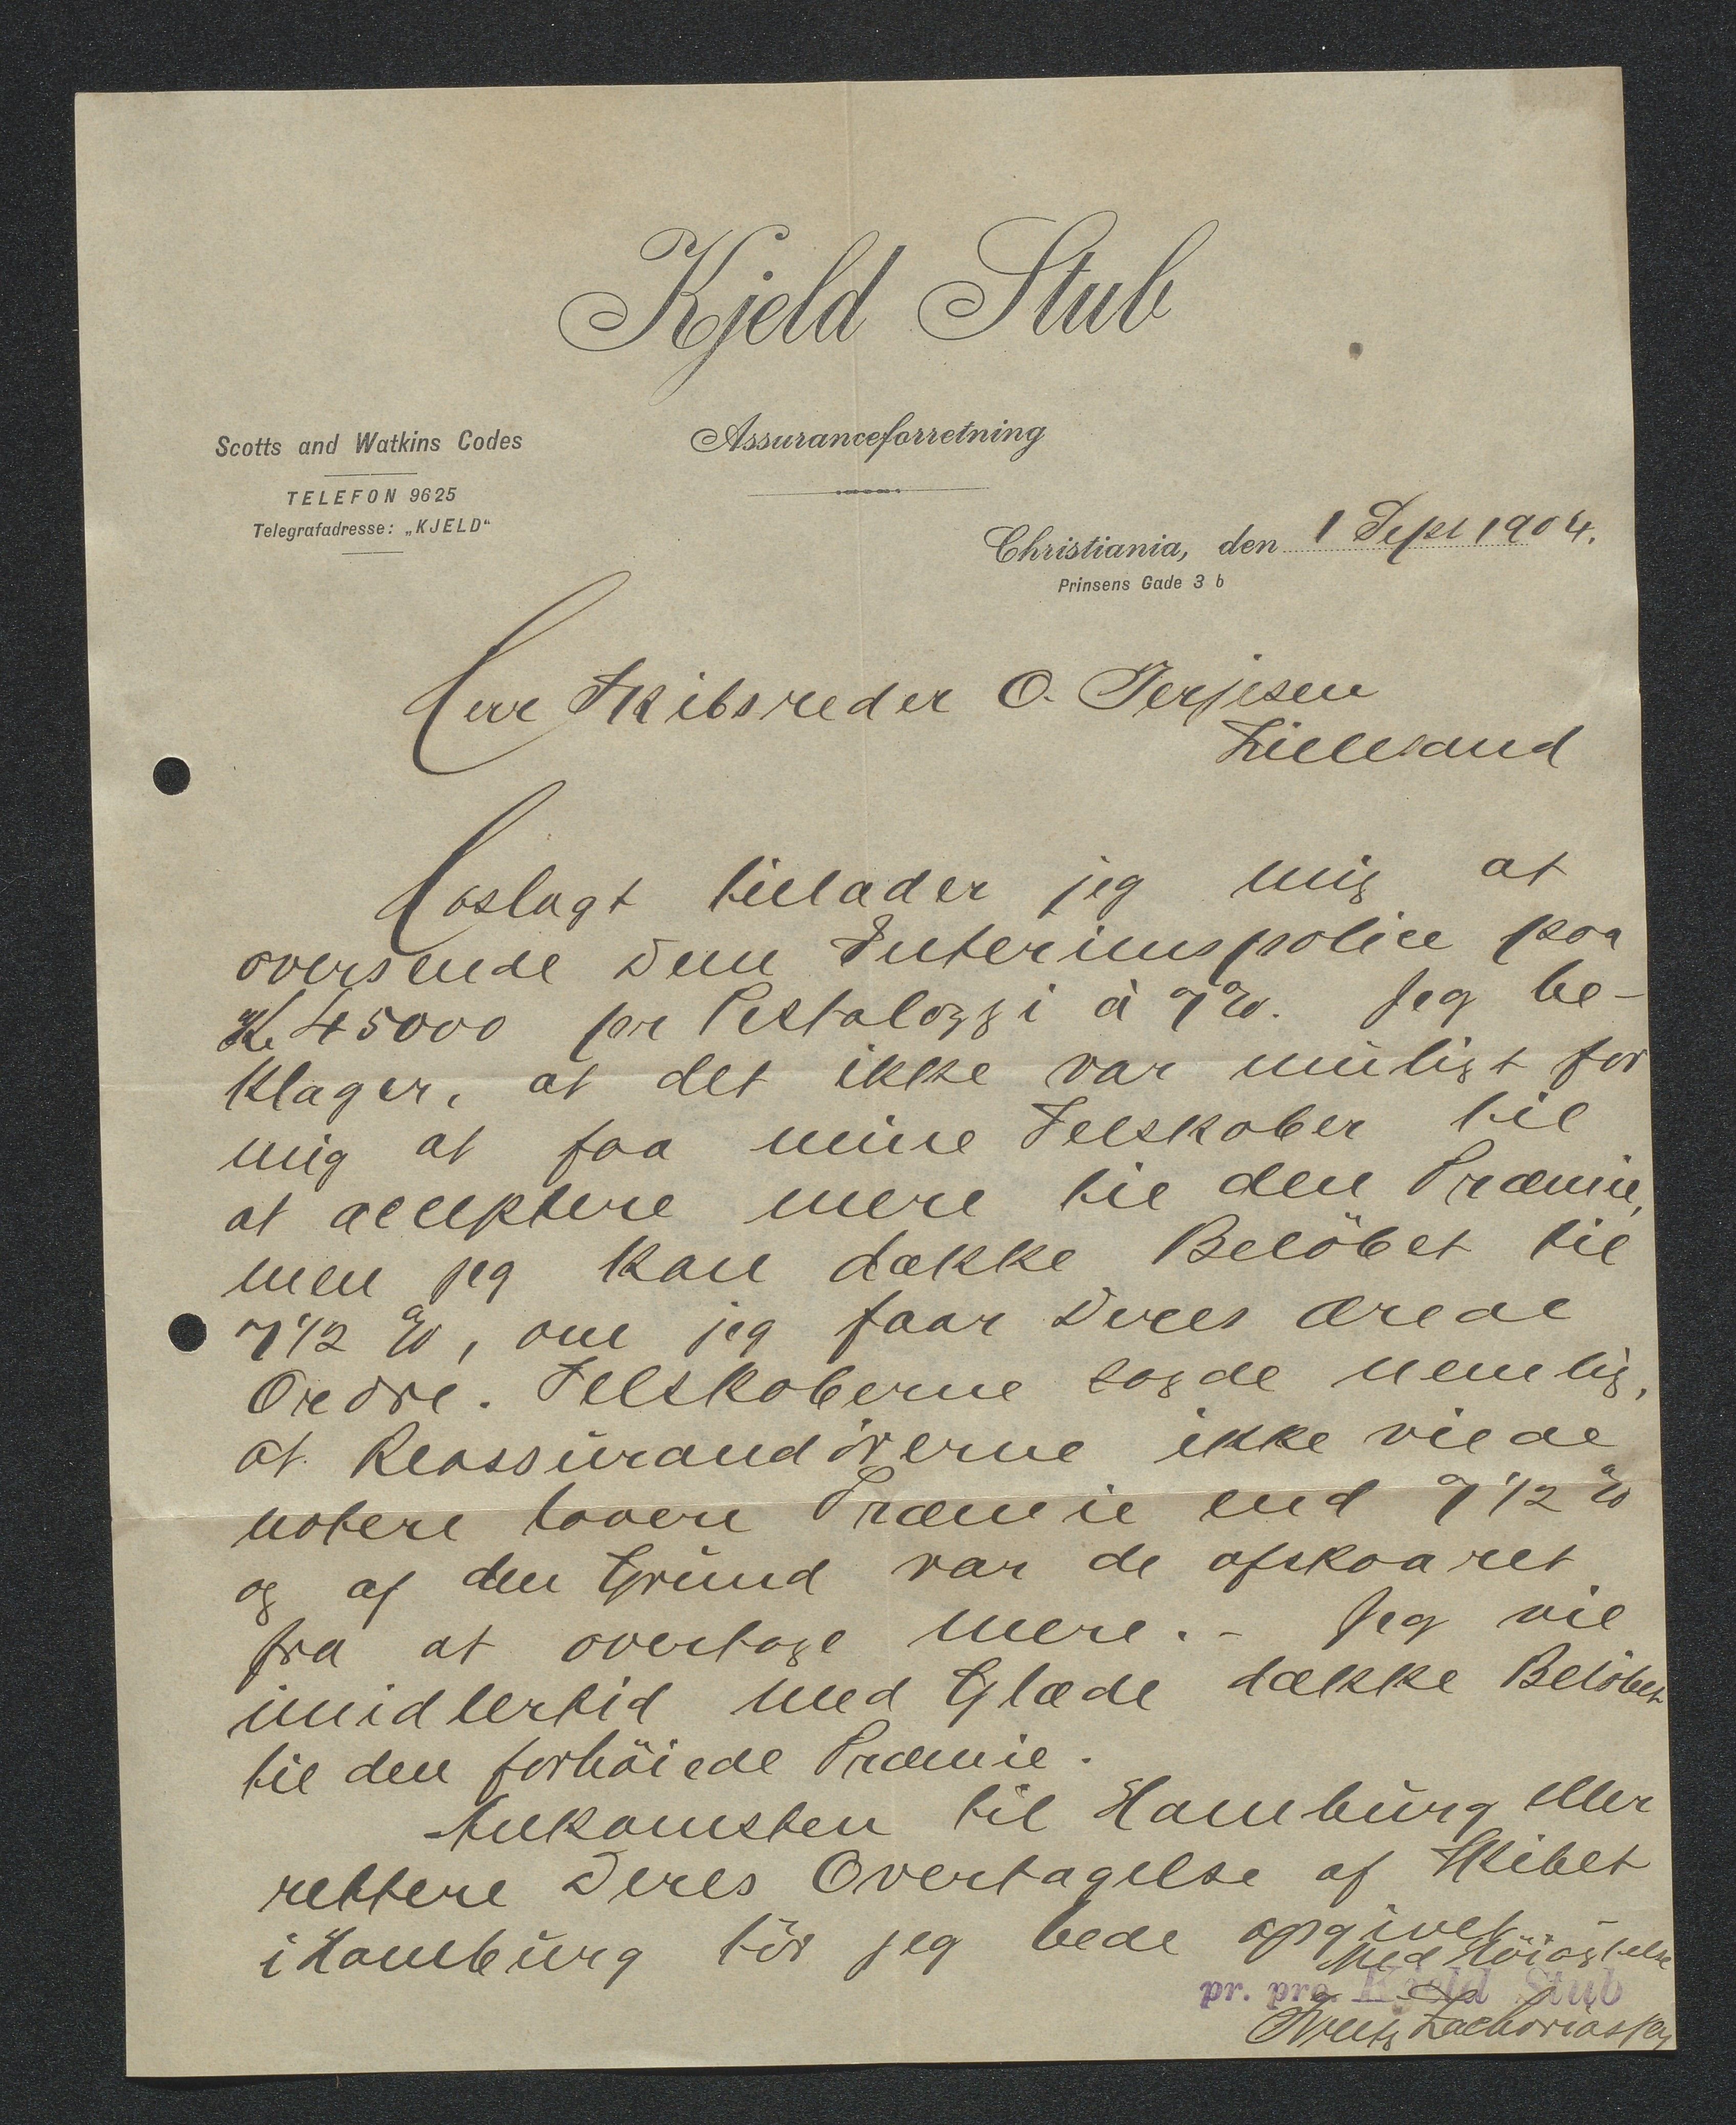 Kjeld Stub
Assuranceforretning
Scotts and Watkins Codes
TELEFON 9625
Telegrafadresse: „KJELD“
Christiania, den 1 Sept 1904.
Prinsens Gade 3 b
Herr Skibsreder O. Terjesen
Lillesand
Hoslagt tillader jeg mig at
oversende Dem Interimspolice paa
Kr. 45000 per Pestalozzi à 7%. Jeg be-
klager, at det ikke var muligt for
mig at faa mine Selskaber til
at acceptere mere til den Præmie,
men jeg kan dække Beløbet til
7 1/2 %, om jeg faar Deres ærede
Ordre. Selskaberne sagde nemlig,
at Reassurandörerne ikke vilde
notere lavere Præmie end 7 1/2 %
og af den Grund var de afskaaret
fra at overtage mere. - Jeg vil
imidlertid med Glæde dække Beløbet
til den forhöiede Præmie.
Ankomsten til Hamburg eller
rettere Deres Overtagelse af Skibet
i Hamburg tör jeg bede opgivet. -
Med Höiagtelse
pr. pro. Kjeld Stub
Zachariassen